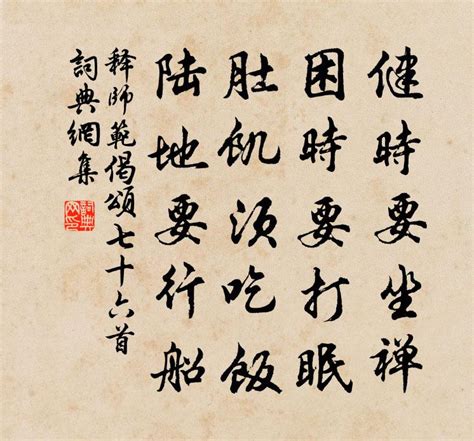 健時要坐禅
困時要打眠
肚飢須吃飯
陸地要行船
释師範偈頌七十六首
詞典網集
詞典网印